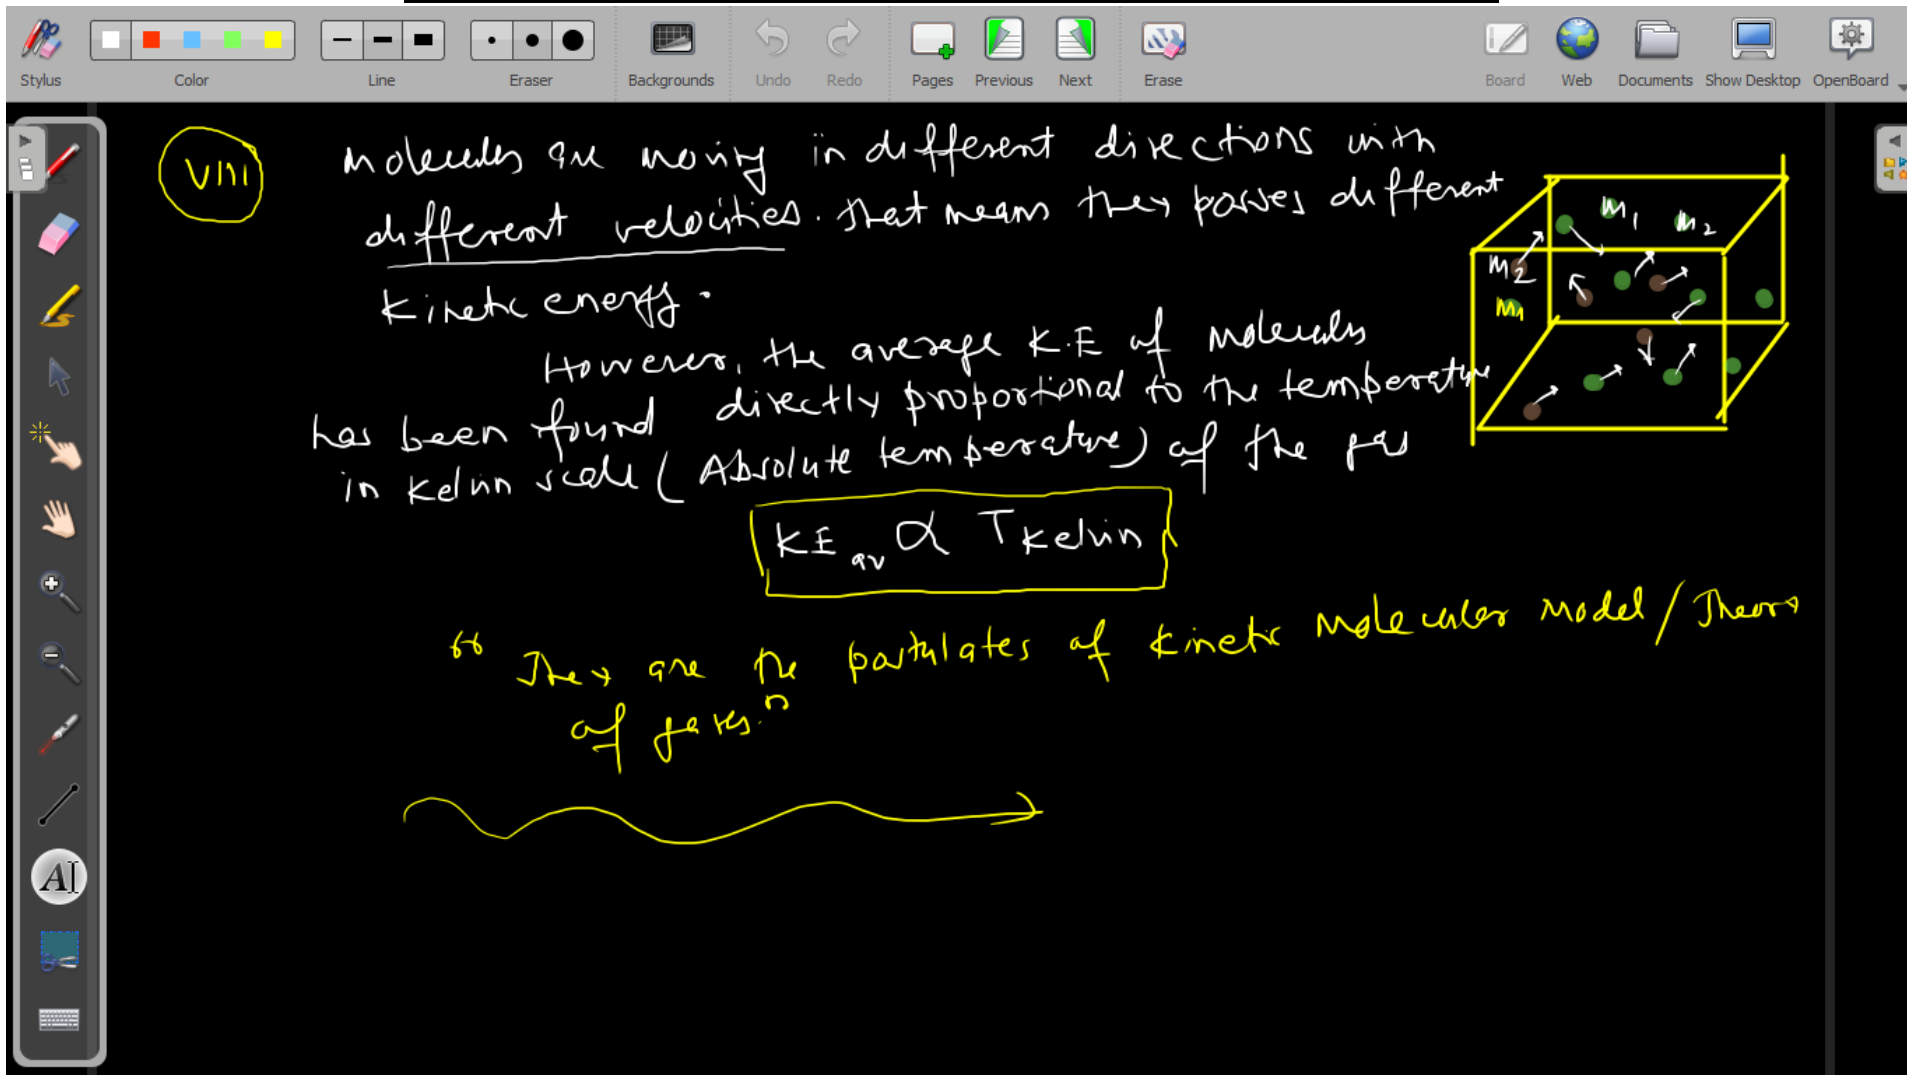 Stylus
Color
Line
Eraser
Backgrounds
Undo
Redo
Pages
Previous
Next
Erase
Board
Web
Documents
Show Desktop
OpenBoard
VIII
Molecules are moving in different directions with
different velocities. That means they posses different
Kinetic energy.
However, the average K.E of molecules
has been found directly proportional to the temperature
in Kelvin scale (Absolute temperature) of the gas
KE av ∝ T Kelvin
“ They are the postulates of Kinetic Molecular Model / Theory
of gases.”
M1
M2
M2
M1
AI